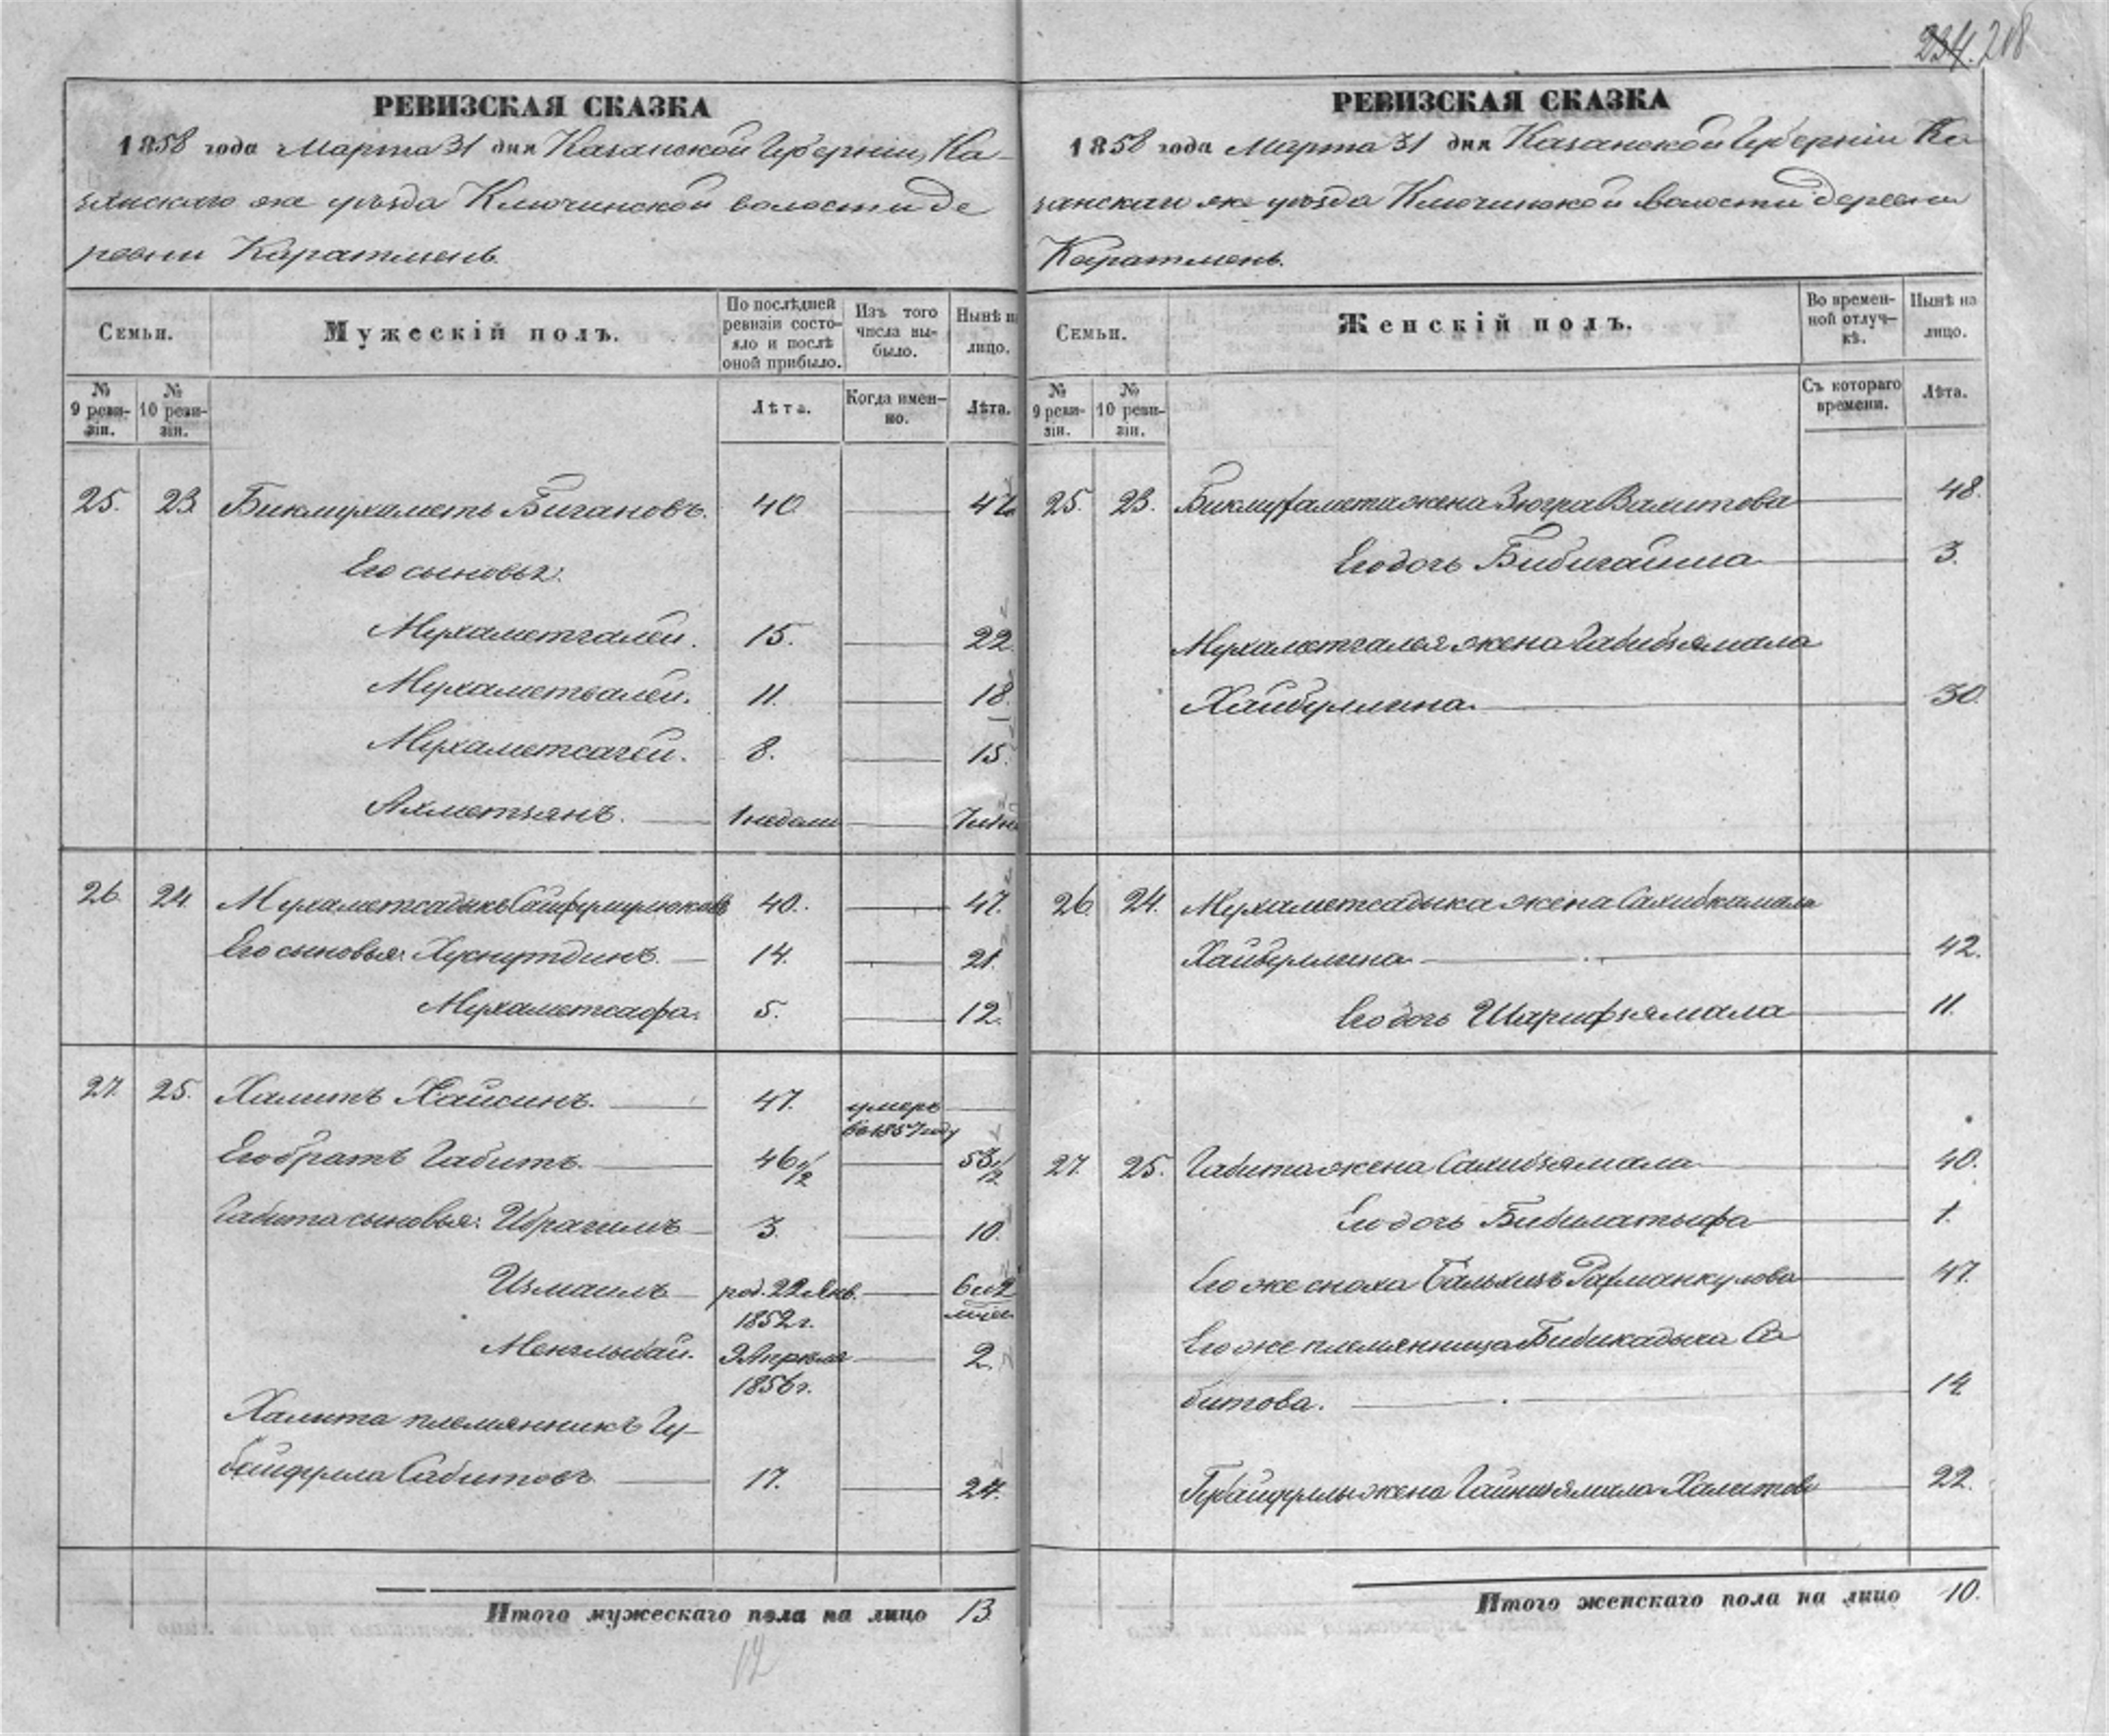 234. 218
РЕВИЗСКАЯ СКАЗКА
1858 года Марта 31 дня Казанской Губерніи, Ка-
занскаго же уѣзда Ключинской волости де
ревни Каратмень.
Семьи.
Мужескій полъ.
По послѣдней ревизіи состо-яло и послѣ оной прибыло.
Изъ того числа вы-было.
Нынѣ на лицо.
№ 9 реви-зіи.
№ 10 реви-зіи.
Лѣта.
Когда имен-но.
Лѣта.
25. 23. Бикмухаметь Бигановъ. 40. 47
Его сыновья:
Мухаметгалей. 15. 22.
Мухаметвалей. 11. 18.
Мухаметсагей. 8. 15.
Ахметзянъ. 1 недели
26. 24. Мухаметсадыкъ Сайфулмулюковъ 40. 47.
Его сыновья: Хуснутдинъ. 14. 21.
Мухаметсафа. 5. 12.
27. 25. Халитъ Хаисинъ. 47. умеръ
въ 1857 году
Его братъ Габитъ. 46 1/2 53 1/2
Габита сыновья: Ибрагимъ 3. 10.
Измаилъ род. 22 Янв. 6 и 2
1852 г. мѣсе
Менглыбай. 9 Апрѣля 2.
1856 г.
Халита племянникъ Гу-
байдулла Сабитовъ 17. 24.
Итого мужескаго пола на лицо 13.
12
РЕВИЗСКАЯ СКАЗКА
1858 года Марта 31 дня Казанской Губерніи Ка
занскаго же уѣзда Ключинской волости деревни
Каратмень.
Семьи.
Женскій полъ.
Во времен-ной отлуч-кѣ.
Нынѣ на лицо.
№ 9 реви-зіи.
№ 10 реви-зіи.
Съ котораго времени.
Лѣта.
25. 23. Бикмухамета жена Зюгра Валитова 48.
Его дочь Бибигайша 3.
Мухаметгалея жена Габибзямала
Хайбуллина. 30.
26. 24. Мухаметсадыка жена Сахибкамала
Хайбуллина 42.
Его дочь Шарифзямала 11.
27. 25. Габита жена Сахибзямала 40.
Его дочь Бибилатыфа 1.
Его же сноха Бальхизъ Рахманкулова 47.
Его же племянница Бибикадыха Са
битова. 14
Губайдуллы жена Гайнизямала Халитова 22.
Итого женскаго пола на лицо 10.